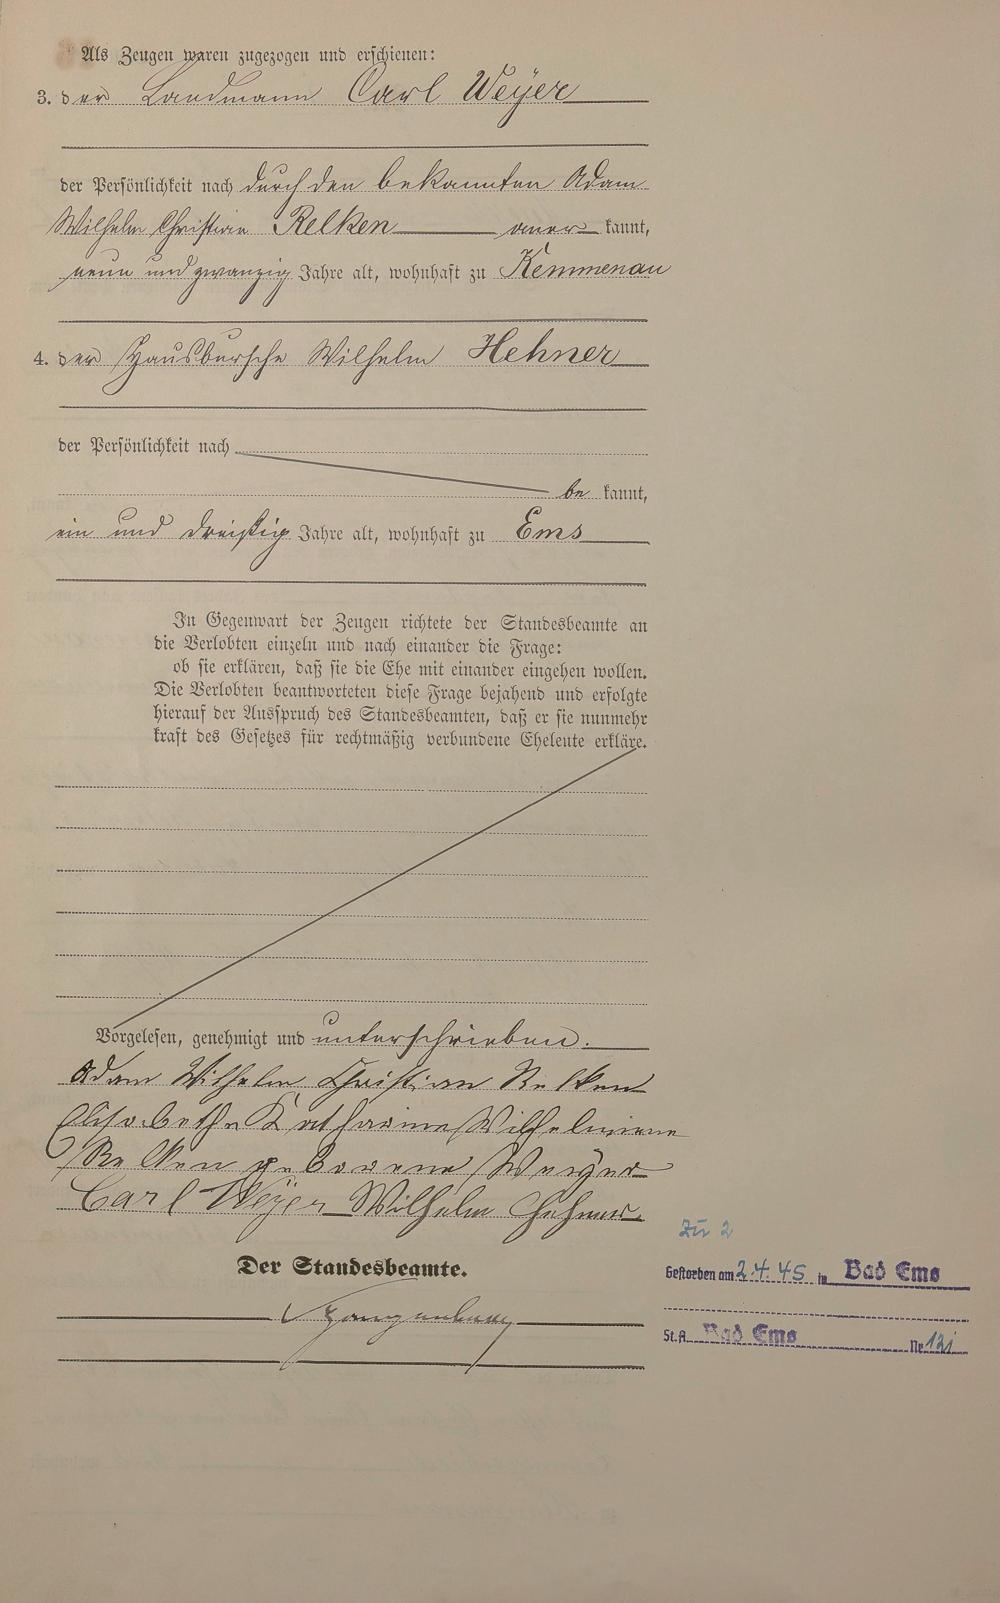 Als Zeugen waren zugezogen und erschienen:
3. der Landmann Carl Weÿer
der Persönlichkeit nach durch den bekannten Adam
Wilhelm Christian Relken aner kannt,
neun und zwanzig Jahre alt, wohnhaft zu Kemmenau
4. der Hausbursche Wilhelm Hehner
der Persönlichkeit nach
be kannt,
ein und dreißig Jahre alt, wohnhaft zu Ems
In Gegenwart der Zeugen richtete der Standesbeamte an
die Verlobten einzeln und nach einander die Frage:
ob sie erklären, daß sie die Ehe mit einander eingehen wollen.
Die Verlobten beantworteten diese Frage bejahend und erfolgte
hierauf der Ausspruch des Standesbeamten, daß er sie nunmehr
kraft des Gesetzes für rechtmäßig verbundene Eheleute erkläre.
Vorgelesen, genehmigt und unterschrieben.
Adam Wilhelm Christian Relken
Elisabethe Katharine Wilhelmine
Relken geborene Weÿer
Carl Weÿer Wilhelm Hehner.
Der Standesbeamte.
Zu 2
Gestorben am 2.4.45 in Bad Ems
St.A. Bad Ems Nr.